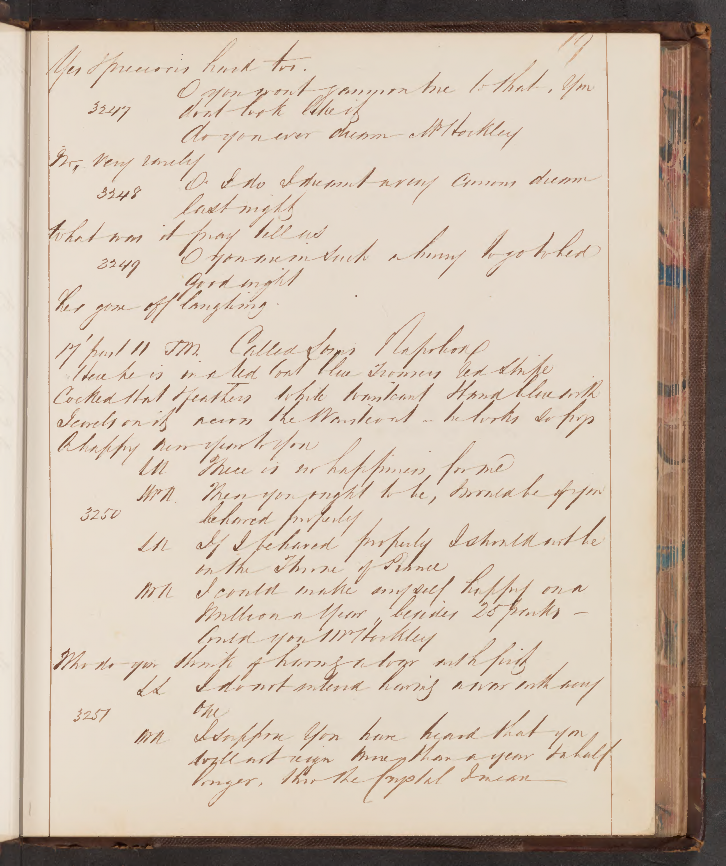 19
Yes & precious hard too.
O you wont gammon me to that. You
3247 dont look like it
do you ever dream Mr Hockley
No, very rarely
3248 O I do I dreamt a very curious dream
last night
What was it pray tell us
3249 O you are in such a hurry to go to bed
Good night
hes gone off laughing.
17' past 11 P.M. Called Louis Napoleon
Here he is in a red coat blue Trousers red stripe
Cocked Hat & feathers white waistcoat & band blue with
Jewels on it across the Waistcoat - he looks so
A happy new year to you
LN There is no happiness for me
Mr R. Then you ought to be, I would be if you
3250 behaved properly
LN If I behaved properly I should not be
on the Throne of France
Mr R I could make myself happy on a
Million a Year besides 25 parks -
Could you Mr Hockley
Who do you think of having a war with first
LN I do not intend having a war with any
3251 one
Mr R I suppose You have heard that you
will not reign more than a year & a half
longer, thro the Crystal I mean